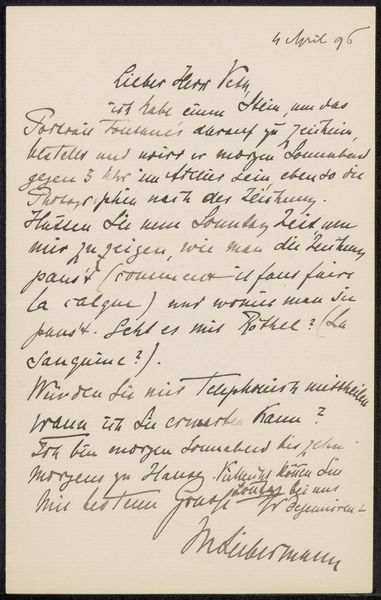 4 April 96
Lieber Herr Veth,
ich habe einen Stein, um das
Portrait Fontane's darauf zu zeichnen,
bestellt und wird er morgen Sonnabend
gegen 3 Uhr im Atelier sein, ebenso die
Photographien nach der Zeichnung.
Hätten Sie nun Sonntag Zeit um
mir zu zeigen, wie man die Zeichnung
paust (comment il faut faire
la calque) und womit man sie
paust. Geht es mit Röthel? (La
Sanguine?).
Würden Sie mir telephonisch mittheilen
wann ich Sie erwarten kann?
Ich bin morgen Sonnabend bis zehn
morgens zu Hause. können Sie
Mit bestem Gruss Sonntag bei uns
Ihr
MLiebermann